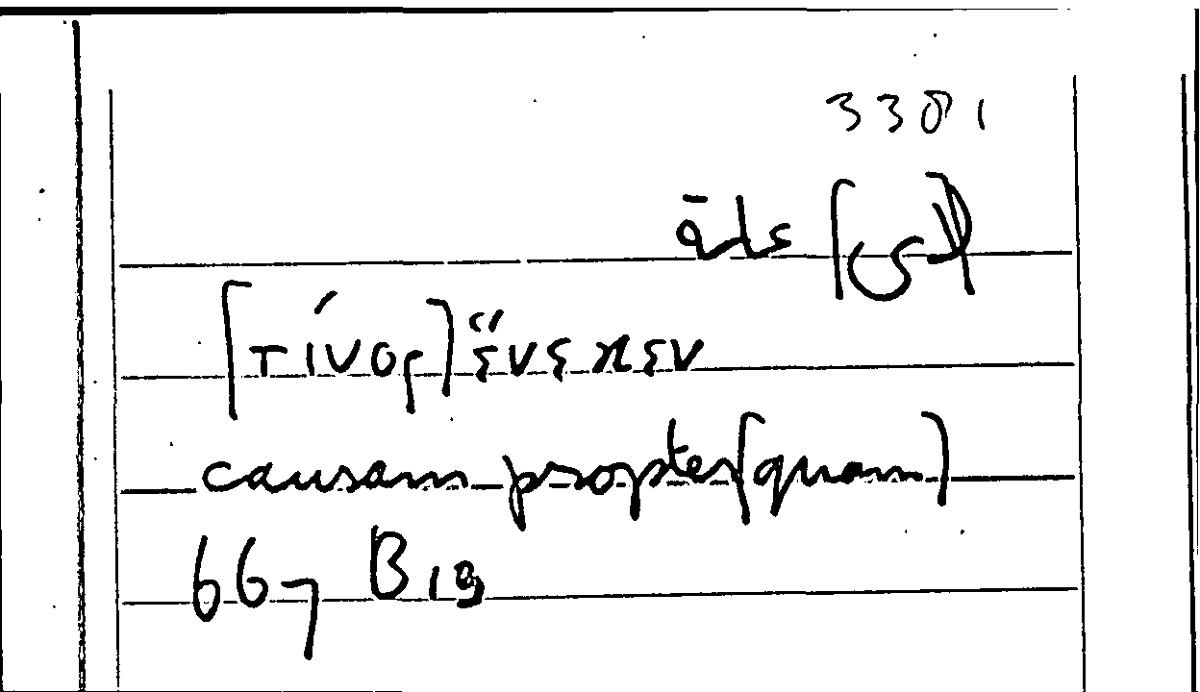 3381
[τίνος] ἕνεκεν
causam propter [quam]
667 B 19